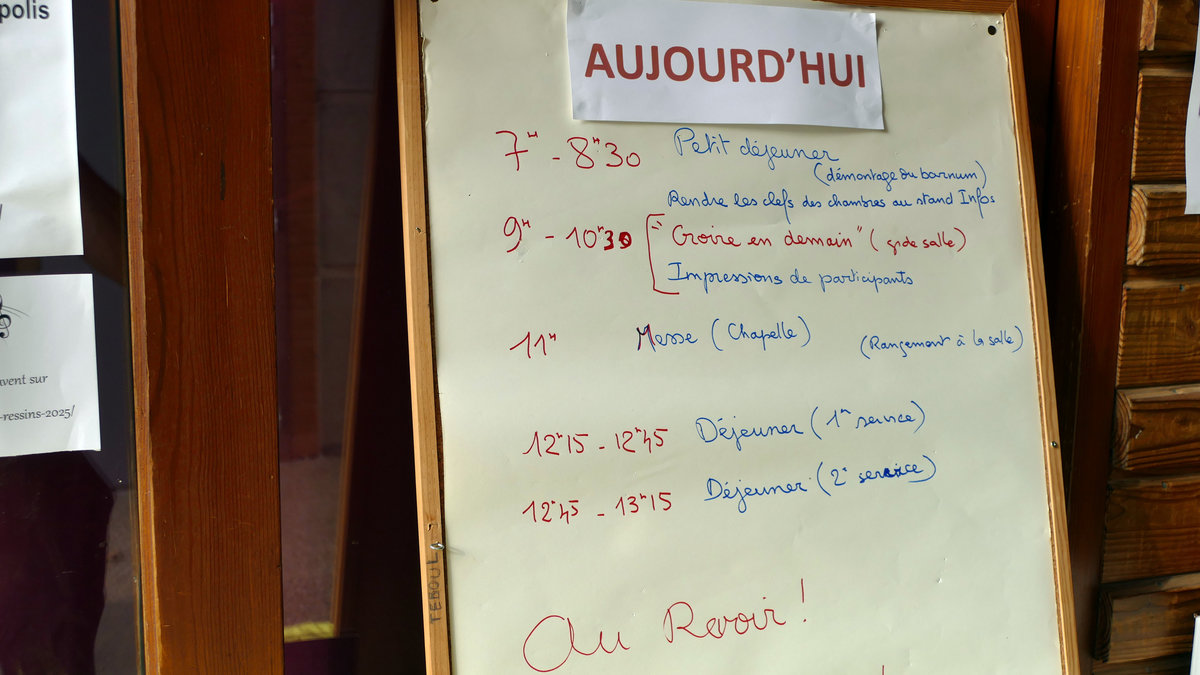 polis
avent sur
-ressins-2025/
AUJOURD'HUI
7H - 8H30 Petit déjeuner
(démontage du barnum)
Rendre les clefs des chambres au stand Infos
9H - 10H30 "Croire en demain" (gde salle)
Impressions de participants
11H Messe (Chapelle) (Rangement à la salle)
12H15 - 12H45 Déjeuner (1er service)
12H45 - 13H15 Déjeuner (2e service)
Au Revoir !